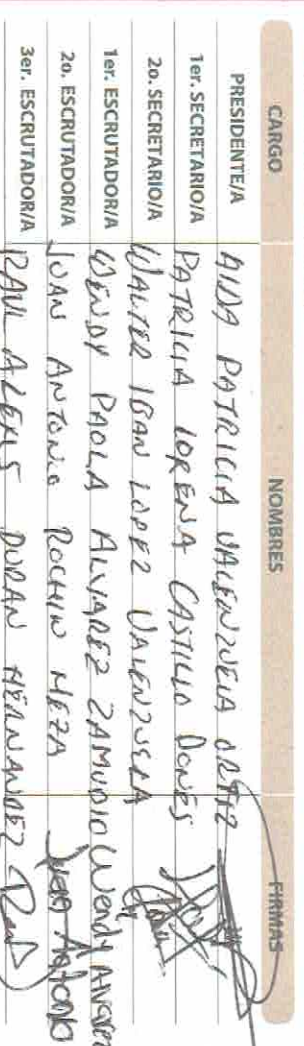 CARGO NOMBRES FIRMAS
PRESIDENTE/A AIDA PATRICIA VALENZUELA ORTIZ
1er. SECRETARIO/A PATRICIA LORENA CASTILLO
2o. SECRETARIO/A WALTER IBAN LOPEZ VALENZUELA
1er. ESCRUTADOR/A WENDY PAOLA ALVAREZ ZAMUDIO Wendy Alvarez
2o. ESCRUTADOR/A JUAN ANTONIO ROCHIN MEZA Juan Antonio
3er. ESCRUTADOR/A RAUL ALEXIS DURAN HERNANDEZ